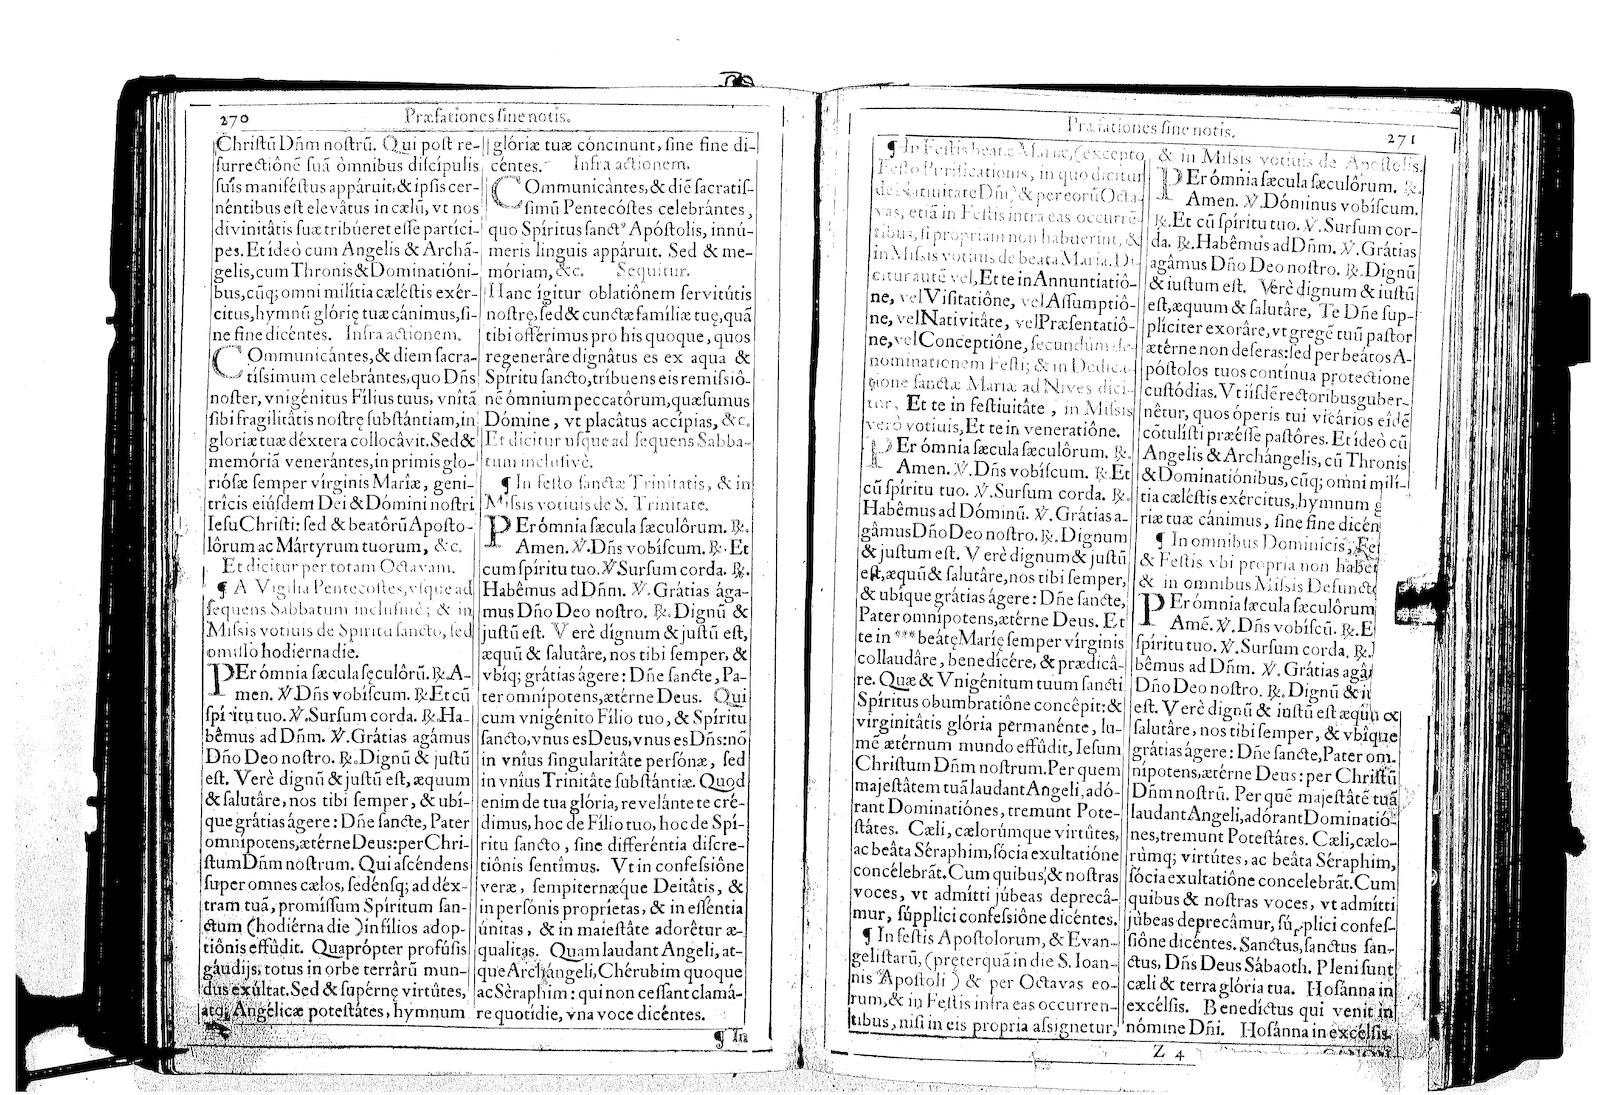 270
Præfationes ſine notis.
Chriſtũ Dñm noſtrũ. Qui poſt re-
ſurrectiônẽ ſuã òmnibus diſcípulis
ſuîs maniféſtus appáruit, & ipſis cer-
nẽntibus eſt elevâtus in cælũ, vt nos
divinitâtis ſuæ tribûeret eſſe partíci-
pes. Et ídeò cum Angelis & Archã-
gelis, cum Thronis & Dominatióni-
bus, cũq; omni milítia cæléſtis exér-
citus, hymnũ glóriȩ tuæ cánimus, ſi-
ne fine dicéntes. Infra actionem.
COmmunicántes, & diem ſacra-
tíſſimum celebrántes, quo Dñs
noſter, vnigénitus Fílius tuus, vnítã
ſibi fragilitâtis noſtrȩ ſubſtántiam, in
gloriæ tuæ déxtera collocâvit. Sed &
memóriã venerántes, in primis glo-
riósæ ſemper vírginis Maríæ, geni-
trîcis eiúſdem Dei & Dómini noſtri
Ieſu Chriſti: ſed & beatôrũ Apoſto-
lôrum ac Mártyrum tuorum, &c.
Et dicitur per totam Octavam.
¶ A Vigilia Pentecoſtes, vſque ad
ſequens Sabbatum incluſiuè; & in
Miſsis votiuis de Spiritu ſancto, ſed
omiſſo hodierna die.
PEr ómnia ſæcula ſȩculôrũ. ℟. A-
men. ℣. Dñs vobíſcum. ℟. Et cũ
ſpíritu tuo. ℣. Surſum corda. ℟. Ha-
bêmus ad Dñm. ℣. Grátias agámus
Dño Deo noſtro. ℟. Dignũ & juſtũ
eſt. Verè dignũ & juſtũ eſt, æquum
& ſalutâre, nos tibi ſemper, & ubí-
que grátias ágere: Dñe ſancte, Pater
omnípotens, ætérne Deus: per Chri-
ſtum Dñm noſtrum. Qui aſcéndens
ſuper omnes cælos, ſedénſq; ad déx-
tram tuã, promíſſum Spíritum ſan-
ctum (hodiérna die) in fílios adop-
tiônis effûdit. Quaprópter profúſis
gáudijs, totus in orbe terrârũ mun-
dus exúltat. Sed & ſupérnȩ virtûtes,
atq; Angélicæ poteſtátes, hymnum
glóriæ tuæ cóncinunt, ſine fine di-
céntes. Infra actionem.
COmmunicántes, & diẽ ſacratíſ-
ſimũ Pentecóſtes celebrántes,
quo Spíritus ſanct⁹ Apóſtolis, innú-
meris linguis appáruit. Sed & me-
móriam, &c. Sequitur.
Hanc ígitur oblatiônem ſervitútis
noſtrȩ, ſed & cunctæ famíliæ tuȩ, quã
tibi offérimus pro his quoque, quos
regenerâre dignâtus es ex aqua &
Spíritu ſancto, tríbuens eis remiſſiô-
nẽ ómnium peccatôrum, quæſumus
Dómine, vt placâtus accípias, &c.
Et dicitur uſque ad ſequens Sabba-
tum incluſivè.
¶ In feſto ſanctæ Trinitatis, & in
Miſsis votiuis de S. Trinitate.
PEr ómnia ſæcula ſæculôrum. ℟.
Amen. ℣. Dñs vobíſcum. ℟. Et
cum ſpíritu tuo. ℣. Surſum corda. ℟.
Habêmus ad Dñm. ℣. Grátias ága-
mus Dño Deo noſtro. ℟. Dignũ &
juſtũ eſt. Verè dígnum & juſtũ eſt,
æquũ & ſalutâre, nos tibi ſemper, &
vbíq; grátias ágere: Dñe ſancte, Pa-
ter omnípotens, ætérne Deus. Qui
cum vnigénito Fílio tuo, & Spíritu
ſancto, vnus es Deus, vnus es Dñs: nõ
in vníus ſingularitâte perſônæ, ſed
in vníus Trinitâte ſubſtántiæ. Quod
enim de tua glória, revelánte te cré-
dimus, hoc de Fílio tuo, hoc de Spí-
ritu ſancto, ſine differéntia diſcre-
tiônis ſentímus. Vt in confeſsiône
veræ, ſempiternæque Deitâtis, &
in perſónis propríetas, & in eſſéntia
únitas, & in maieſtâte adorêtur æ-
qualitas. Quam laudant Angeli, at-
que Archángeli, Chérubim quoque
ac Séraphim: qui non ceſſant clamá-
re quotídie, vna voce dicéntes.
¶ In
Præfationes ſine notis.
271
¶ In Feſtis beatæ Mariæ, (excepto
Feſto Purificationis, in quo dicitur
de Nativitate Dñi) & per eorũ Octa-
vas, etiã in Feſtis intra eas occurrẽ-
tibus, ſi propriam non habuerint, &
in Miſsis votiuis de beata Maria. Di-
citur autẽ vel, Et te in Annuntiatiô-
ne, vel Viſitatiône, vel Aſſumptiô-
ne, vel Nativitâte, vel Præſentatiô-
ne, vel Conceptiône, ſecundũm de-
nominationem Feſti; & in Dedica-
tione ſanctæ Mariæ ad Nives dici-
tur, Et te in feſtiuitâte, in Miſsis
verò votiuis, Et te in veneratiône.
PEr ómnia ſæcula ſæculôrum. ℟.
Amen. ℣. Dñs vobíſcum. ℟. Et
cũ ſpíritu tuo. ℣. Surſum corda. ℟.
Habêmus ad Dóminũ. ℣. Grátias a-
gâmus Dño Deo noſtro. ℟. Dignum
& juſtum eſt. Verè dignum & juſtũ
eſt, æquũ & ſalutâre, nos tibi ſemper,
& ubíque grátias ágere: Dñe ſancte,
Pater omnípotens, ætérne Deus. Et
te in *** beátȩ Maríȩ ſemper vírginis
collaudâre, benedícére, & prædicâ-
re. Quæ & Vnigénitum tuum ſancti
Spíritus obumbratiône concêpit: &
virginitâtis glória permanénte, lu-
mẽ ætérnum mundo effûdit, Ieſum
Chriſtum Dñm noſtrum. Per quem
majeſtâtem tuã laudant Angeli, adó-
rant Dominatiónes, tremunt Pote-
ſtátes. Cæli, cælorúmque virtûtes,
ac beâta Séraphim, ſócia exultatióne
concélebrãt. Cum quibus, & noſtras
voces, vt admítti júbeas deprecâ-
mur, ſúpplici confeſsiône dicéntes.
¶ In feſtis Apoſtolorum, & Evan-
geliſtarũ, (prȩterquã in die S. Ioan-
nis Apoſtoli) & per Octavas eo-
rum, & in Feſtis infra eas occurren-
tibus, niſi in eis propria aſsignetur,
& in Miſsis votiuis de Apoſtolis.
PEr ómnia ſæcula ſæculôrum. ℟.
Amen. ℣. Dóminus vobíſcum.
℟. Et cũ ſpíritu tuo. ℣. Surſum cor-
da. ℟. Habêmus ad Dñm. ℣. Grátias
agâmus Dño Deo noſtro. ℟. Dignũ
& iuſtum eſt. Verè dignum & iuſtũ
eſt, æquum & ſalutâre, Te Dñe ſup-
plíciter exorâre, vt gregẽ tuũ paſtor
ætérne non déſeras: ſed per beátos A-
póſtolos tuos contínua protectione
cuſtódias. Vt iiſdẽ rectoribus guber-
nêtur, quos óperis tui vicários eidẽ
cõtulíſti præéſſe paſtóres. Et ídeò cũ
Angelis & Archángelis, cũ Thronis
& Dominatiónibus, cũq; omni milí-
tia cæléſtis exércitus, hymnum g
riæ tuæ cánimus, ſine fine dicén
¶ In omnibus Dominicis, Fer
& Feſtis vbi propria non haber
& in omnibus Miſsis Defuncto
PEr ómnia ſæcula ſæculôrum
Amẽ. ℣. Dñs vobíſcũ. ℟. E
ſpíritu tuo. ℣. Surſum corda. ℟.
bêmus ad Dñm. ℣. Grátias agâ
Dño Deo noſtro. ℟. Dignũ & iu
eſt. Verè dignũ & iuſtũ eſt æquũ &
ſalutâre, nos tibi ſemper, & vbíque
grátias ágere: Dñe ſancte, Pater om-
nípotens, ætérne Deus: per Chriſtũ
Dñm noſtrũ. Per quẽ majeſtâtẽ tuã
laudant Angeli, adórant Dominatió-
nes, tremunt Poteſtátes. Cæli, cælo-
rúmq; virtûtes, ac beâta Séraphim,
ſócia exultatiône concelebrãt. Cum
quibus & noſtras voces, vt admítti
júbeas deprecâmur, ſúpplici confeſ-
ſiône dicéntes. Sanctus, ſanctus ſan-
ctus, Dñs Deus Sábaoth. Pleni ſunt
cæli & terra glória tua. Hoſánna in
excélſis. Benedíctus qui venit in
nómine Dñi. Hoſánna in excélſis.
Z 4
CANON